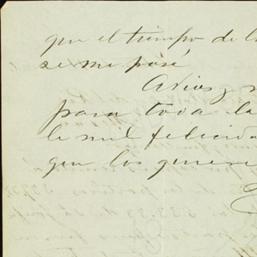 que el tiempo de
se me pasé
Adios y
para toda la
le mil felicida
que los quiere